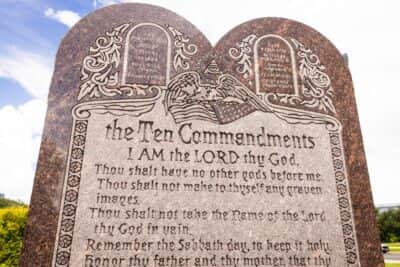 the Ten Commandments
I AM the LORD thy God.
Thou shalt have no other gods before me.
Thou shalt not make to thyself any graven
images.
Thou shalt not take the Name of the Lord
thy God in vain.
Remember the Sabbath day, to keep it holy.
Honor thy father and thy mother, that thy